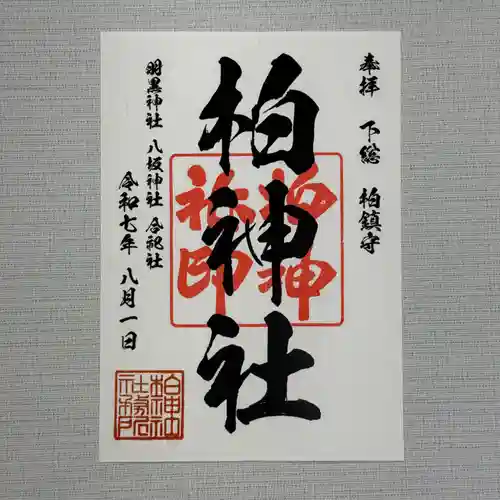 奉拝 下総 柏鎮守
柏神社
柏神
社印
羽黒神社 八坂神社 合祀社
令和七年 八月一日